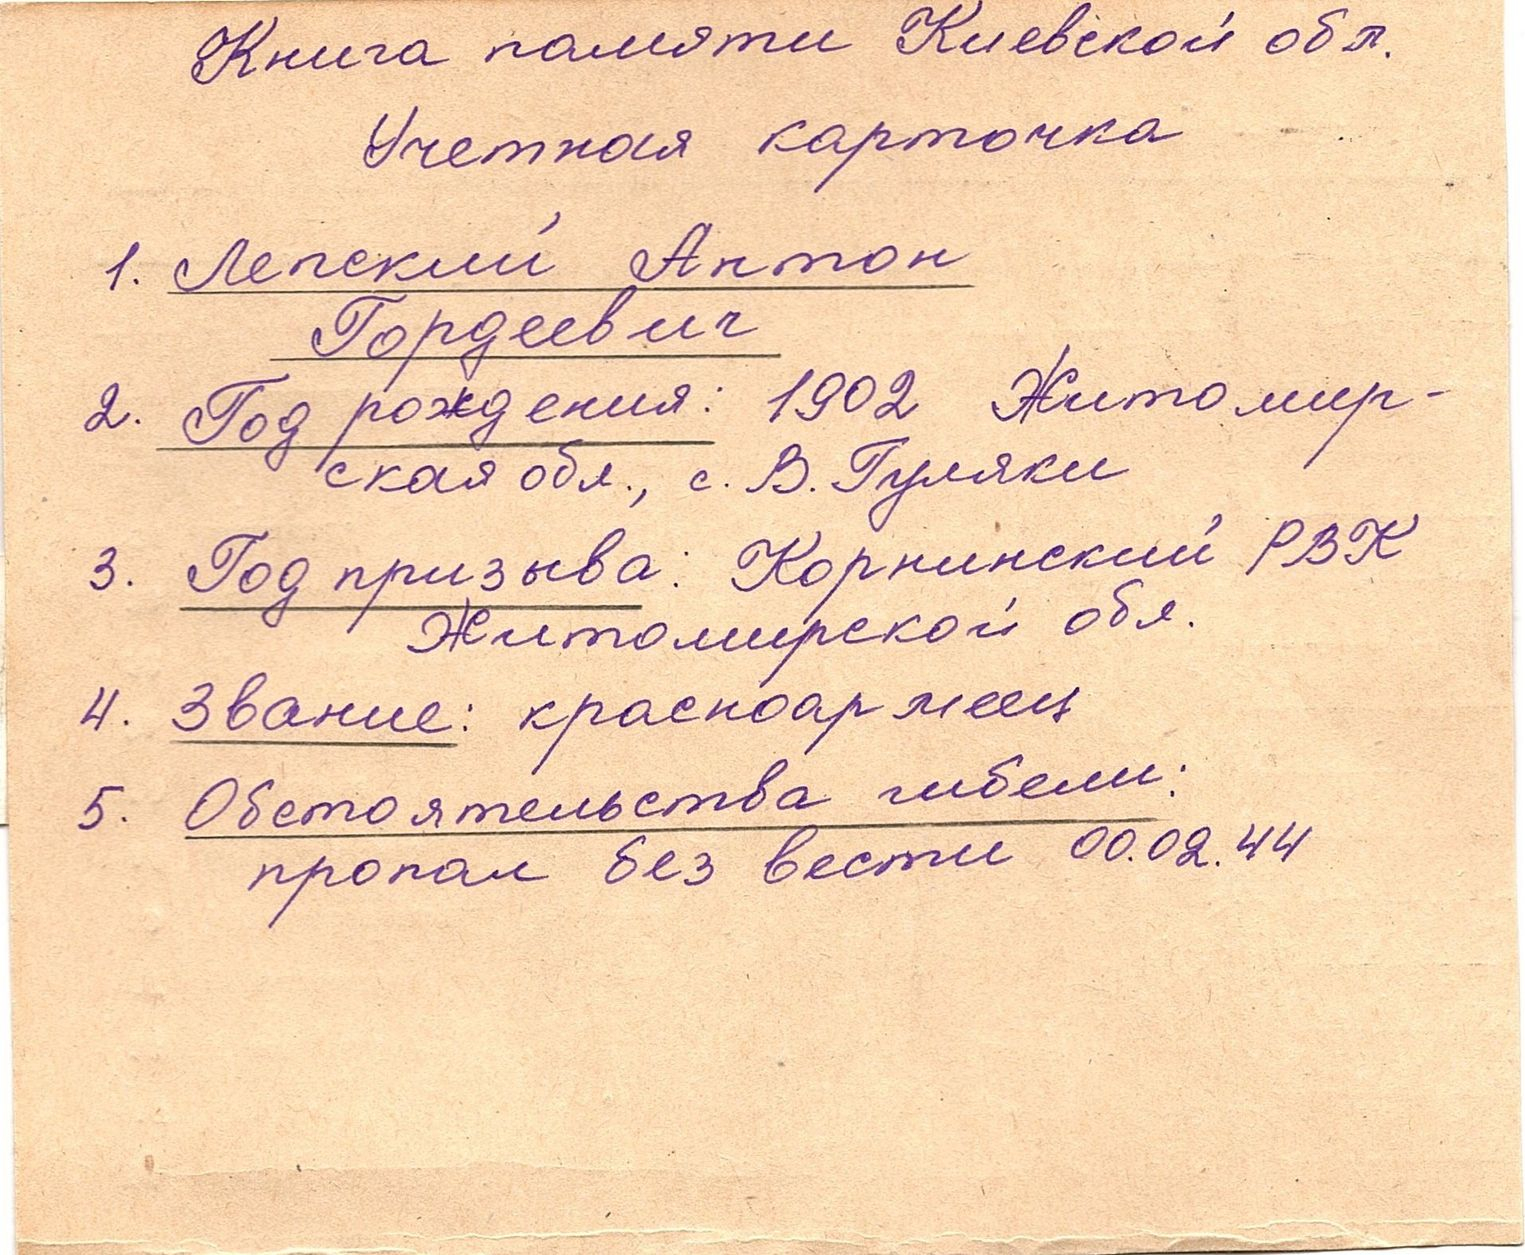 Книга памяти Киевской обл.
Учетная карточка
1. Лепский Антон
Гордеевич
2. Год рождения: 1902 Житомир-
ская обл., с. В. Гуляки
3. Год призыва: Корнинский РВК
Житомирской обл.
4. Звание: красноармеец
5. Обстоятельства гибели:
пропал без вести 00.02.44